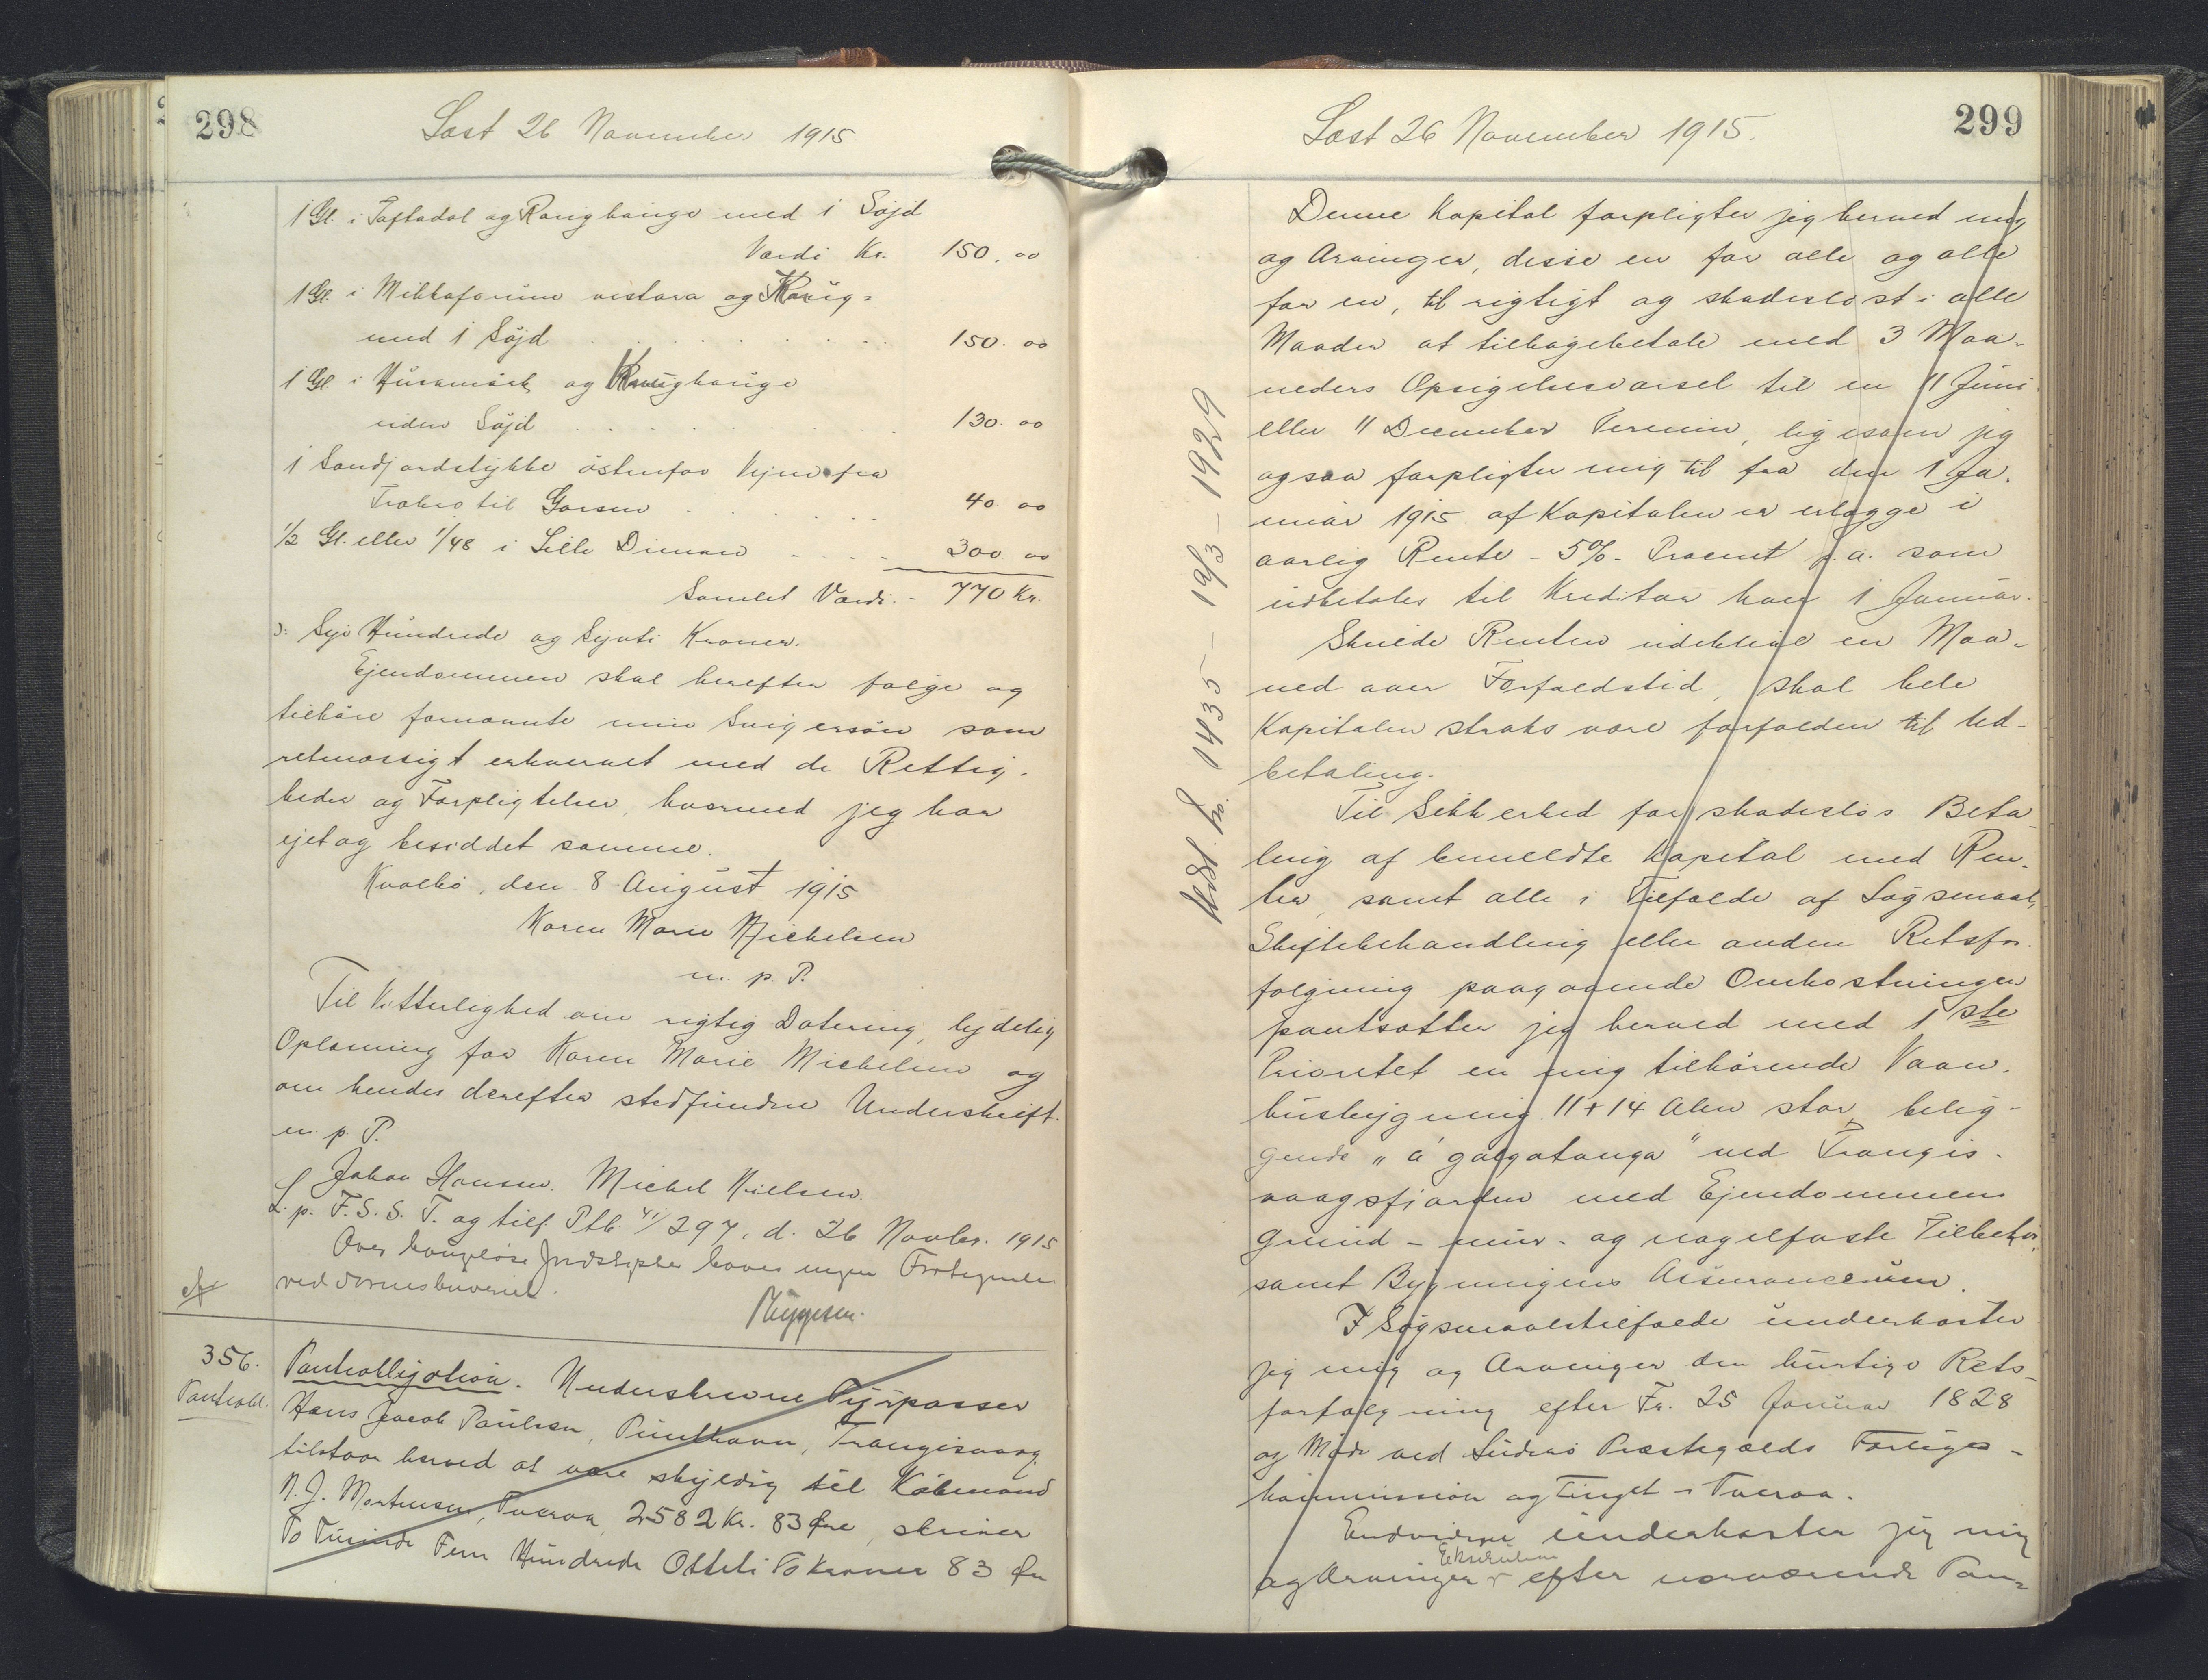 298
Læst 26 November 1915
1 Gl. i Toftadal og Kvighauge med i Søjd
Værdi Kr. 150.00
1 Gl. i Mikkaforum vestara og
med 1 Søjd 150.00
1 Gl i og
uden Søjd 130.00
1 Sandjordstykke østenfor Vejen fra
til Garsen 40 00
1/2 Gl. eller 1/48 i Lille Dimon 300 00
Samlet Værdi - 770 Kr.
ɔ: Syv Hundrede og Syvti Kroner.
Ejendommen skal herefter følge og
tilhøre fornævnte min Svigersøn som
retmæssigt erhvervet med de Rettig-
heder og Forpligtelser, hvormed jeg har
ejet og besiddet samme.
Kvalbø, den 8 August 1915
Karen Marie Michelsen
m. p. P.
Til Vitterlighed om rigtig Datering, lydelig
Oplæsning for Karen Marie Michelsen og
om hendes derefter stedfundne Underskrift
m. p. P.
Johan Hansen. Michel Nielsen.
L. p. F. S. S. T. og tilf. Ptb. 41/297, d. 26 Novbr. 1915
Over haves ingen
ved
356.
Pantobl.
Pantobligation. Underskrevne Fyrpasser
Hans Jacob Poulsen, Trangisvaag,
tilstaar herved at være skyldig til Købmand
N. J. Mortensen, Tveraa, 2582 Kr. 83 Øre, skriver
To Tusinde Fem Hundrede Otteti To Kroner 83 Øre
299
Læst 26 November 1915.
Denne Kapital forpligter jeg herved mig
og Arvinger, disse en for alle og alle
for en, til rigtigt og skadesløst i alle
Maader at tilbagebetale med 3 Maa-
neders Opsigelsesvarsel til en 11 Juni
eller 11 December Termin, ligesom jeg
ogsaa forpligter mig til fra den 1 Ja-
nuar 1915 af Kapitalen at erlægge i
aarlig Rente - 5% - Procent p. a. som
udbetales til Kreditor hver 1 Januar.
Skulde Renten udeblive en Maa-
ned over Forfaldstid, skal hele
Kapitalen straks være forfalden til Ud-
betaling.
Til Sikkerhed for skadesløs Beta-
ling af bemeldte Kapital med Ren-
ter, samt alle i Tilfælde af Søgsmaal,
Skiftebehandling eller anden Retsfor-
følgning paagaaende Omkostninger
pantsætter jeg herved med 1ste
Prioritet en mig tilhørende Vaan-
husbygning 11 + 14 Alen stor, belig-
gende „á gølgatanga" ved Trangis-
vaagsfjorden med Ejendommens
Grund - mur - og nagelfaste Tilbehør,
samt Bygningens Assurancesum.
I Søgsmaalstilfælde underkaster
jeg mig og Arvinger den hurtige Rets-
forfølgning efter Fr. 25 Januar 1828
og Møde ved Suderø Præstegælds Forligs-
kommission og Tinget i Tveraa.
Endvidere underkaster jeg mig
Eksekution
og Arvinger efter nærværende Pan-
Udsl. fr. 1435 - 19/3 - 1929